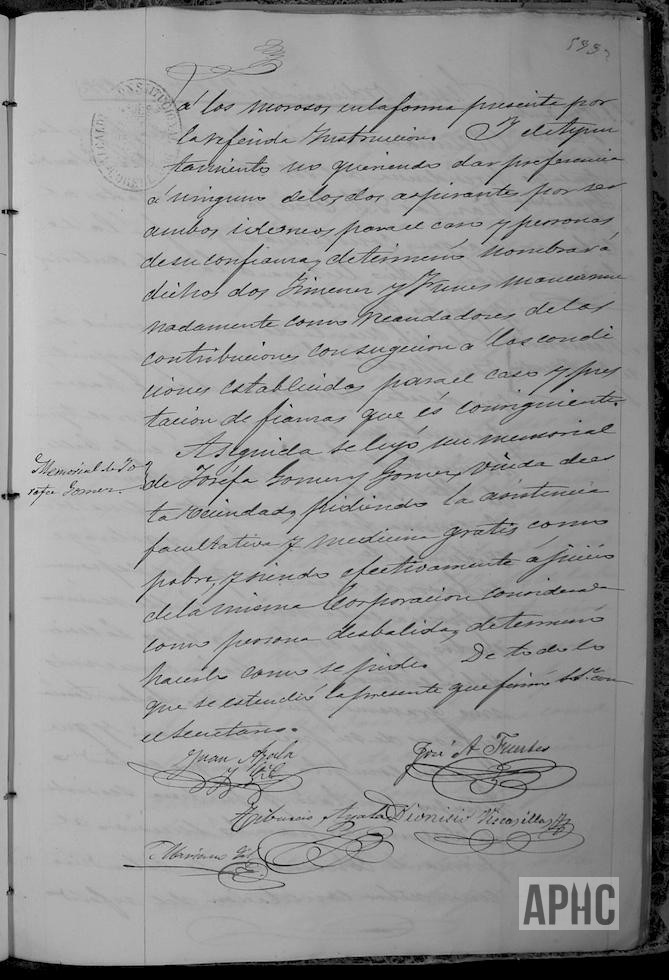 á los morosos en la forma presente por
la referida Instruccion. Y el Ayun
tamiento no queriendo dar preferencia
á ninguno de los dos aspirantes por ser
ambos idoneos para el caso y personas
de su confianza, determinó nombrar á
dichos dos Jimenez y Funes mancomu
nadamente como recaudadores de las
contribuciones con sugecion á las condi
ciones establecidas para el caso y pres
tacion de fianzas que és consiguiente.
Memorial de Jo
sefa Gomez.
A seguida se leyó un memorial
de Josefa Gomez y Gomez, viuda de es
ta vecindad, pidiendo la asistencia
facultativa y medicina gratis como
pobre, y siendo efectivamente á juicio
de la misma Corporacion considerada
como persona desbalida, determinó
hacerlo como se pide. De todo lo
que se estendió la presente que firmó con
el Secretario.
Juan Ayala
y Gil
José A Fuertes
Tiburcio Ayala
Dionisio Viscasillas
Mariano
APHC